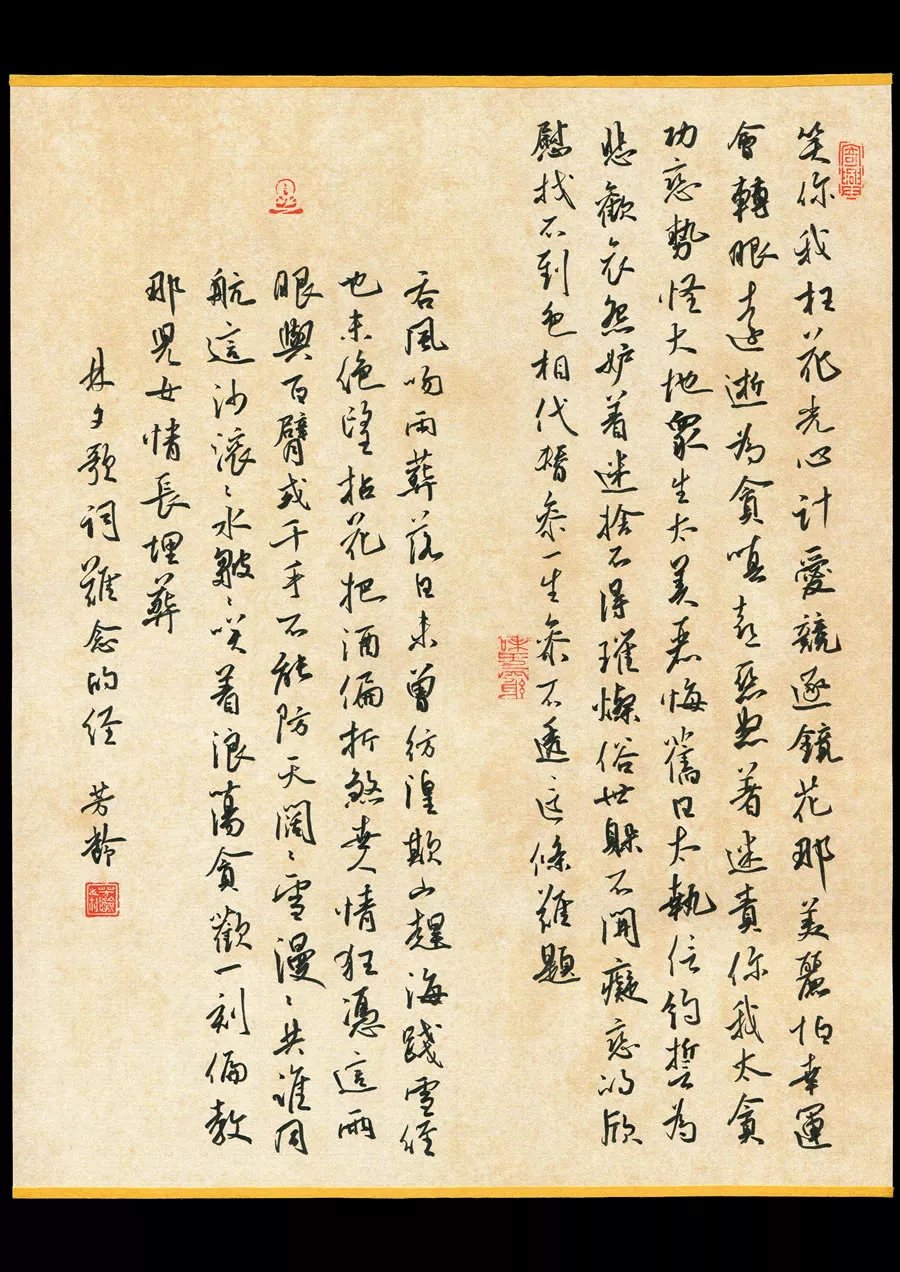 笑你我枉花光心計愛競逐鏡花那美麗怕幸運
會轉眼遠逝為貪嗔喜惡怒著迷責你我太貪
功戀勢怪大地眾生太美悪悔舊日太執信約誓為
悲歡哀怨妒着迷捨不得璀燦俗世躲不開癡戀的欣
慰找不到色相代替參一生參不透這條難題
吞風吻雨葬落日未曾彷徨欺山趕海踐雪徑
也未絕望拈花把酒偏折煞世人情狂憑這兩
眼與百臂或千手不能防天闊〻雪漫〻共誰同
航這沙滾〻水皺〻笑着浪蕩貪歡一刻偏教
那兒女情長埋葬
林夕歌詞難念的经 芳齡